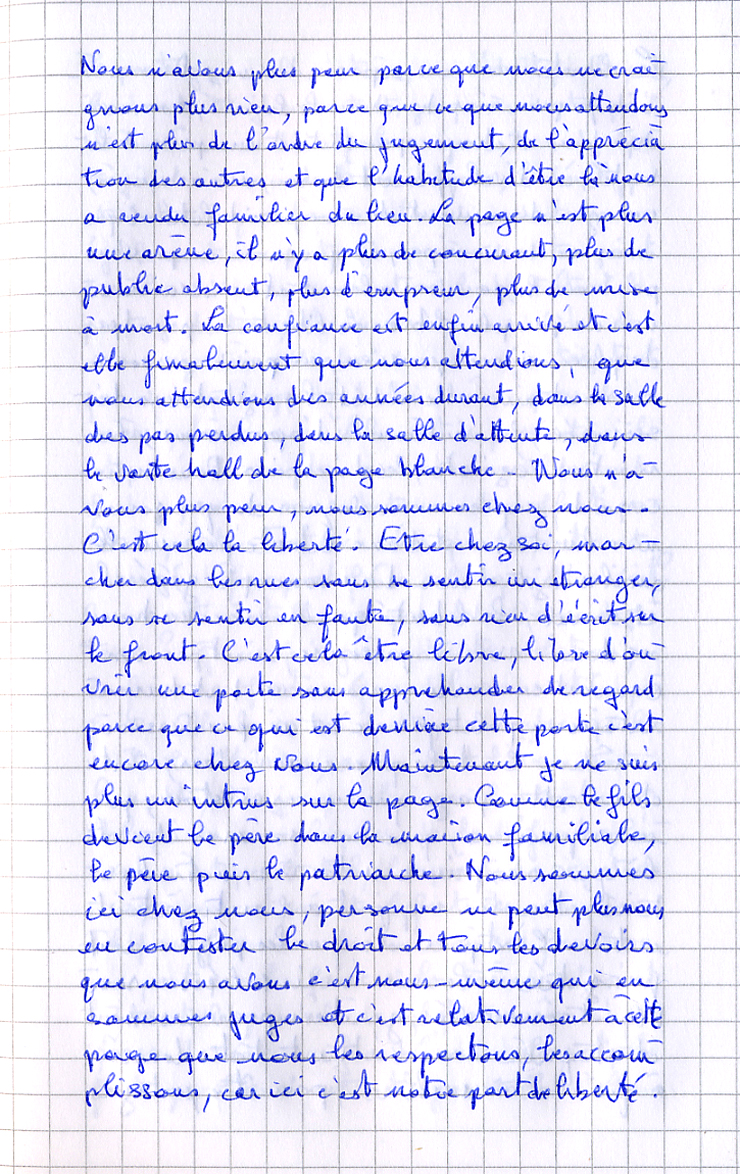 Nous n'avons plus peur parce que nous ne crai-
gnons plus rien, parce que ce que nous attendons
n'est plus de l'ordre du jugement, de l'apprécia-
tion des autres et que l'habitude d'être là nous
a rendu familier du lieu. La page n'est plus
une arène, il n'y a plus de concurant, plus de
public absent, plus d'empreur, plus de mise
à mort. La confiance est enfin arrivé et c'est
elle finalement que nous attendions, que
nous attendions des années durant, dans la salle
des pas perdus, dans la salle d'attente, dans
le vaste hall de la page blanche. Nous n'a-
vons plus peur, nous sommes chez nous.
C'est cela la liberté. Etre chez soi, mar-
cher dans les rues sans se sentir un étranger,
sans se sentir en faute, sans rien d'écrit sur
le front. C'est cela être libre, libre d'ou-
vrir une porte sans apprehender de regard
parce que ce qui est derrière cette porte c'est
encore chez nous. Maintenant je ne suis
plus un intrus sur la page. Comme le fils
devient le père dans la maison familiale,
le père puis le patriarche. Nous sommes
ici chez nous, personne ne peut plus nous
en contester le droit et tous les devoirs
que nous avons c'est nous-même qui en
sommes juges et c'est relativement à cette
page que nous les respectons, les accom-
plissons, car ici c'est notre part de liberté.